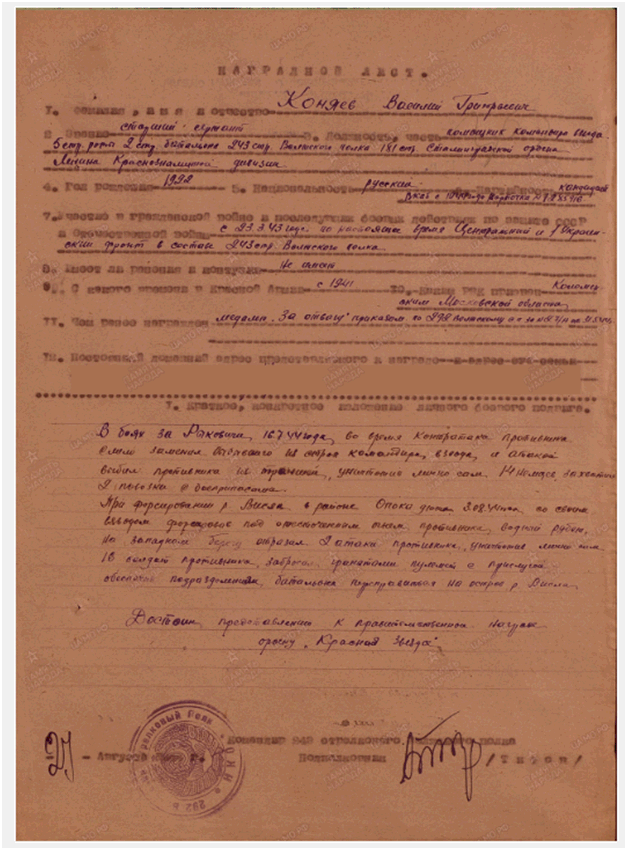 НАГРАДНОЙ ЛИСТ.
1. Фамилия, имя и отчество Коняев Василий
2. Звание старший сержант 3. Должность, часть помощник командира взвода
5 стр. роты 2 стр. батальона 243 стр. Волынского полка 181 стр. Сталинградской ордена
Ленина Краснознаменной дивизии
4. Год рождения 1922 5. Национальность русский 6. Партийность кандидат
ВКПб с 1944 года
7. Участие в гражданской войне и последующих боевых действиях по защите СССР
и Отечественной войне с 23.3.43 года по настоящее время Центральный и 1 Украин-
ский фронт в составе 243 стр. Волынского полка.
8. Имеет ли ранения и контузии Не имеет
9. С какого времени в Красной Армии с 1941 10. Каким РВК призван Коломен-
ским Московской области
11. Чем ранее награжден медаль "За отвагу" приказом по
12. Постоянный домашний адрес представляемого к награде и адрес его семьи
1. Краткое, конкретное изложение личного боевого подвига.
В боях за Раковичи, 16.7.44 года, во время контратаки противника
смело заменил командира взвода, и атакой
выбил противника из траншеи, уничтожив лично сам 14 немцев захватил
2 повозки с боеприпасами.
При форсировании р. Висла в районе Опока 2.08.44 года, со своим
взводом форсировал под ожесточенным огнем противника водный рубеж,
на западном берегу отразил 2 атаки противника, уничтожив лично сам
18 солдат противника, забросал гранатами пулемет и прислугу
обеспечив подразделениям батальона переправиться на остров р. Висла.
Достоин представлению к правительственной награде
ордену "Красная Звезда"
Командир 243 стрелкового Волынского полка
"27" Августа Подполковник /Титов/